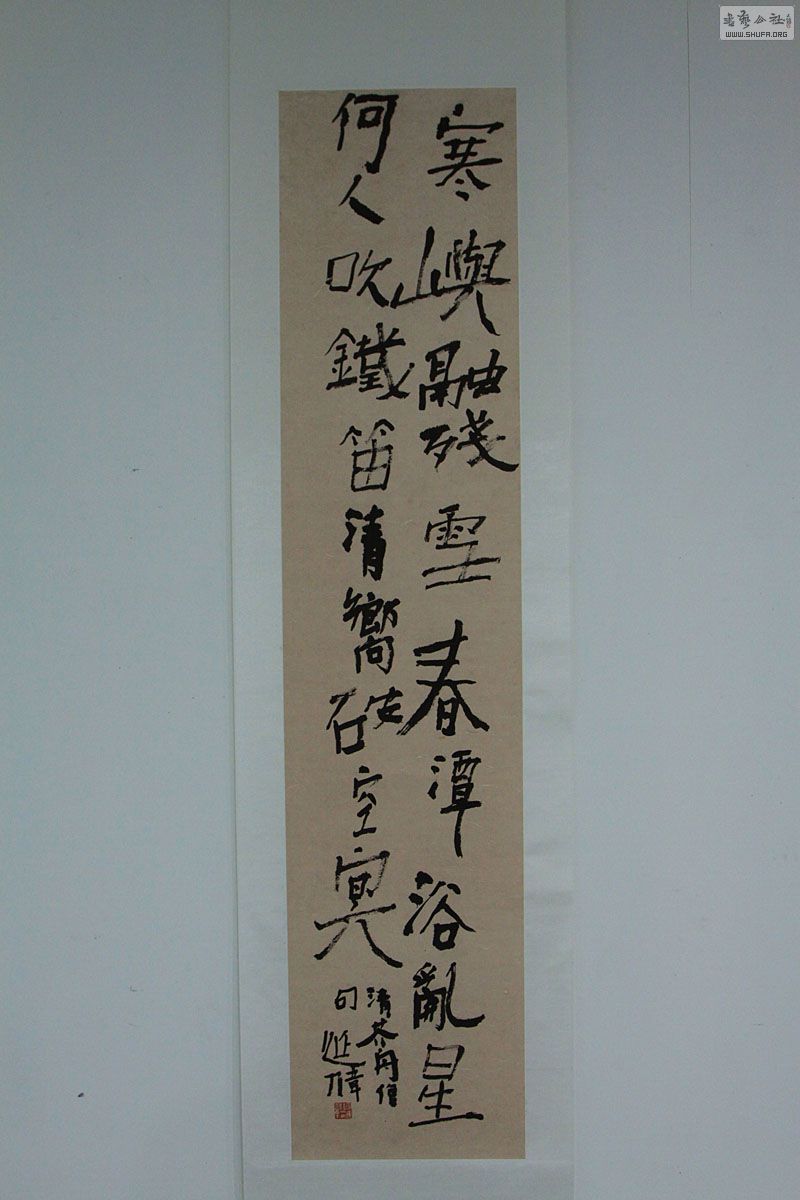 寒嶼融殘雪春潭浴亂星
何人吹鐵笛清嚮破空冥
清芥舟僧
句進偉
書藝公社
WWW.SHUFA.ORG